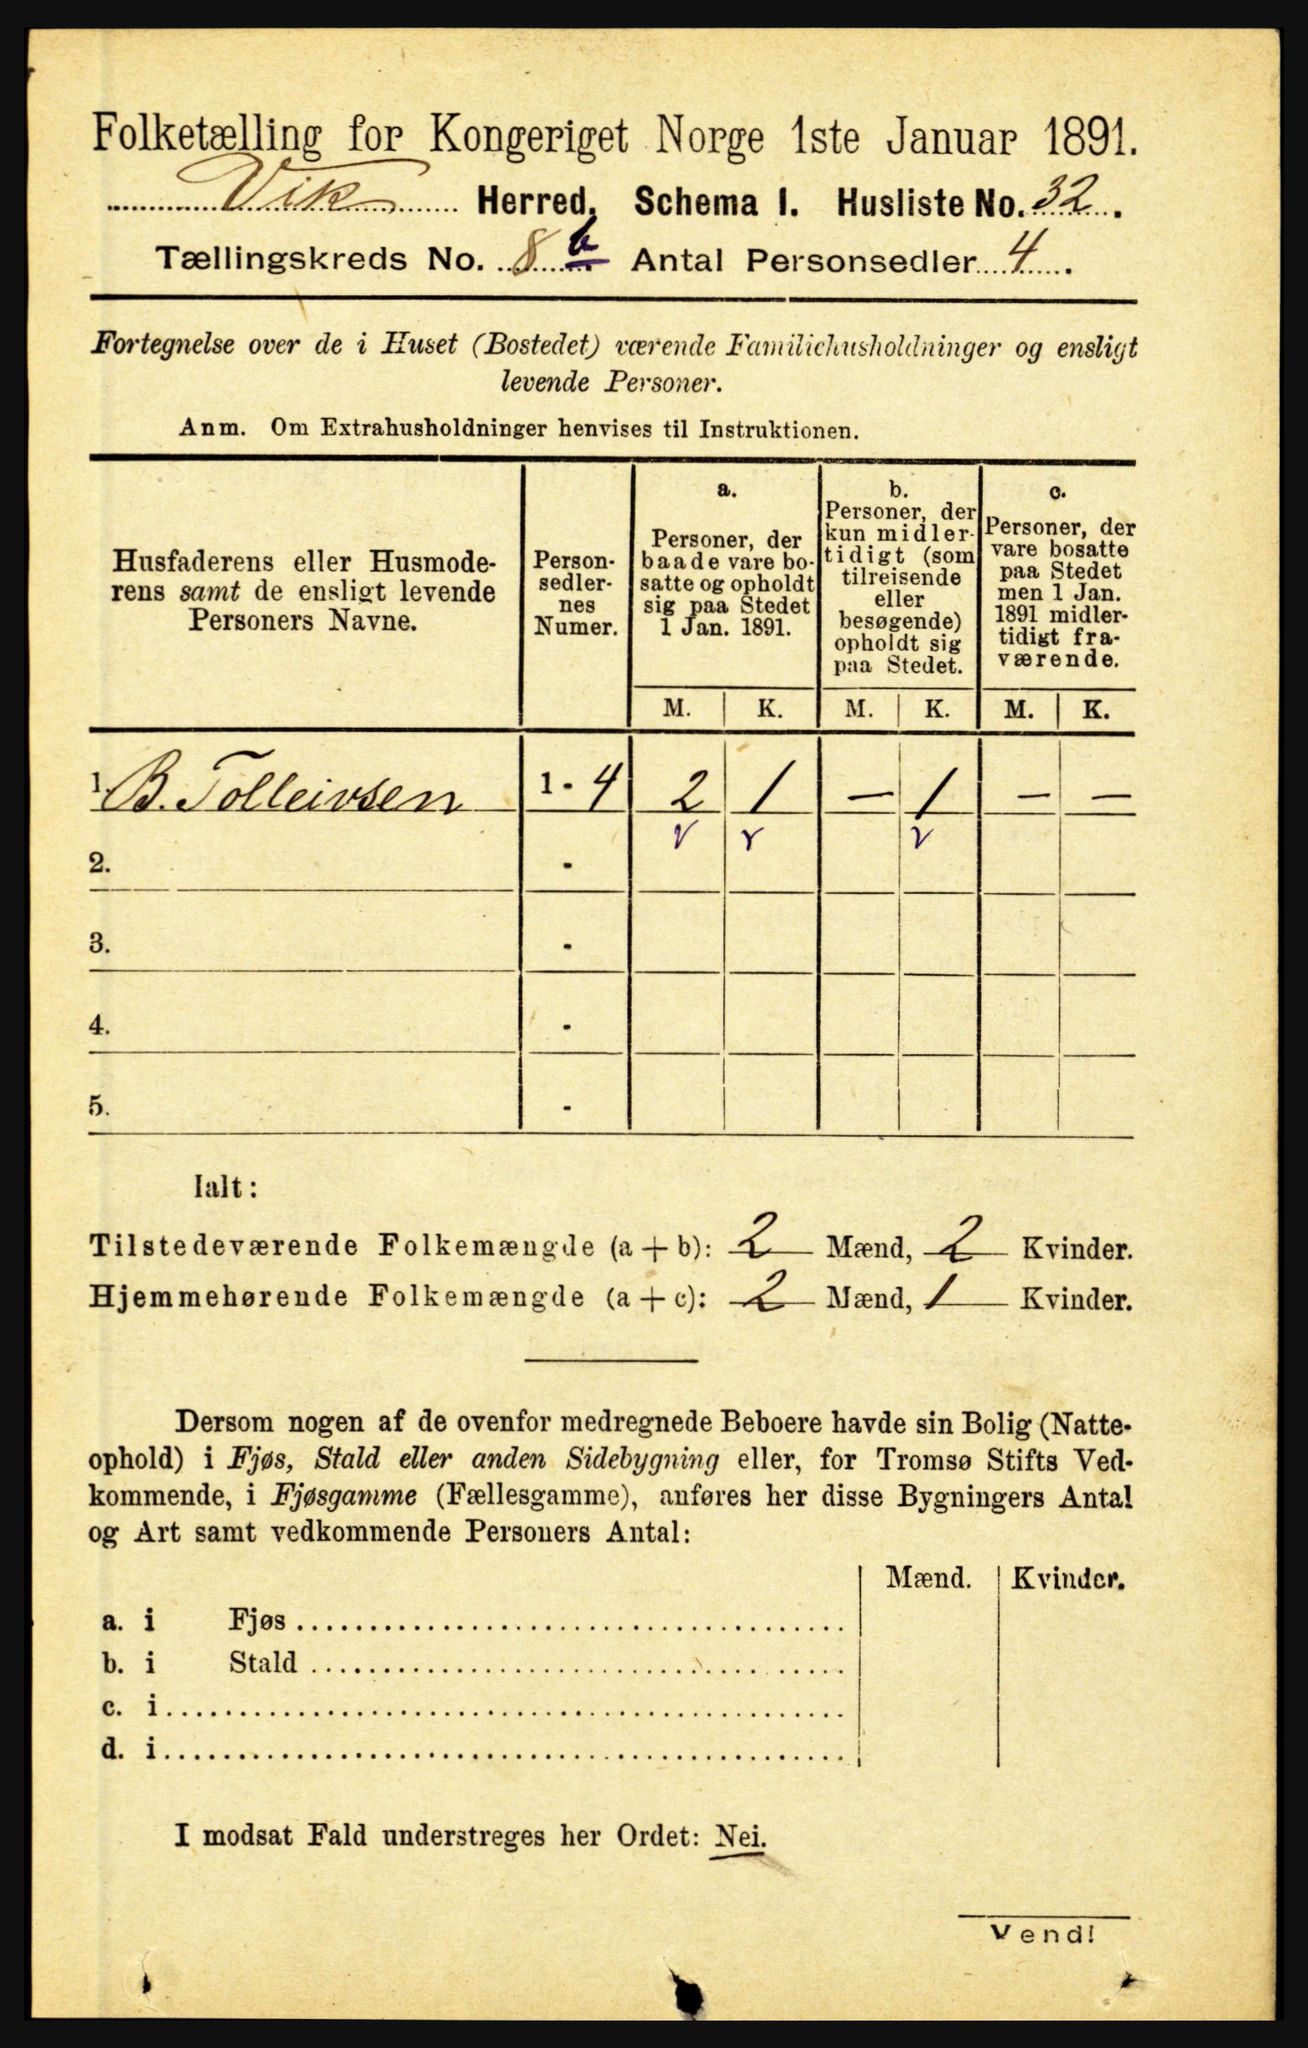 Folketælling for Kongeriget Norge 1ste Januar 1891.
Vik Herred. Schema I. Husliste No. 32.
Tællingskreds No. 8 b Antal Personsedler 4.
Fortegnelse over de i Huset (Bostedet) værende Familiehusholdninger og ensligt
levende Personer.
Anm. Om Extrahusholdninger henvises til Instruktionen.
Husfaderens eller Husmode-
rens samt de ensligt levende
Personers Navne.
Person-
sedler-
nes
Numer.
a.
Personer, der
baade vare bo-
satte og opholdt
sig paa Stedet
1 Jan. 1891.
b.
Personer, der
kun midler-
tidigt (som
tilreisende
eller
besøgende)
opholdt sig
paa Stedet.
c.
Personer, der
vare bosatte
paa Stedet
men 1 Jan.
1891 midler-
tidigt fra-
værende.
M. K. M. K. M. K.
1. B. Tolleivsen 1 - 4 2 1 — 1 — —
2. -
3. -
4. -
5. -
Ialt:
Tilstedeværende Folkemængde (a + b): 2 Mænd, 2 Kvinder.
Hjemmehørende Folkemængde (a + c): 2 Mænd, 1 Kvinder.
Dersom nogen af de ovenfor medregnede Beboere havde sin Bolig (Natte-
ophold) i Fjøs, Stald eller anden Sidebygning eller, for Tromsø Stifts Ved-
kommende, i Fjøsgamme (Fællesgamme), anføres her disse Bygningers Antal
og Art samt vedkommende Personers Antal:
Mænd. Kvinder.
a. i Fjøs
b. i Stald
c. i
d. i
I modsat Fald understreges her Ordet: Nei.
Vend!